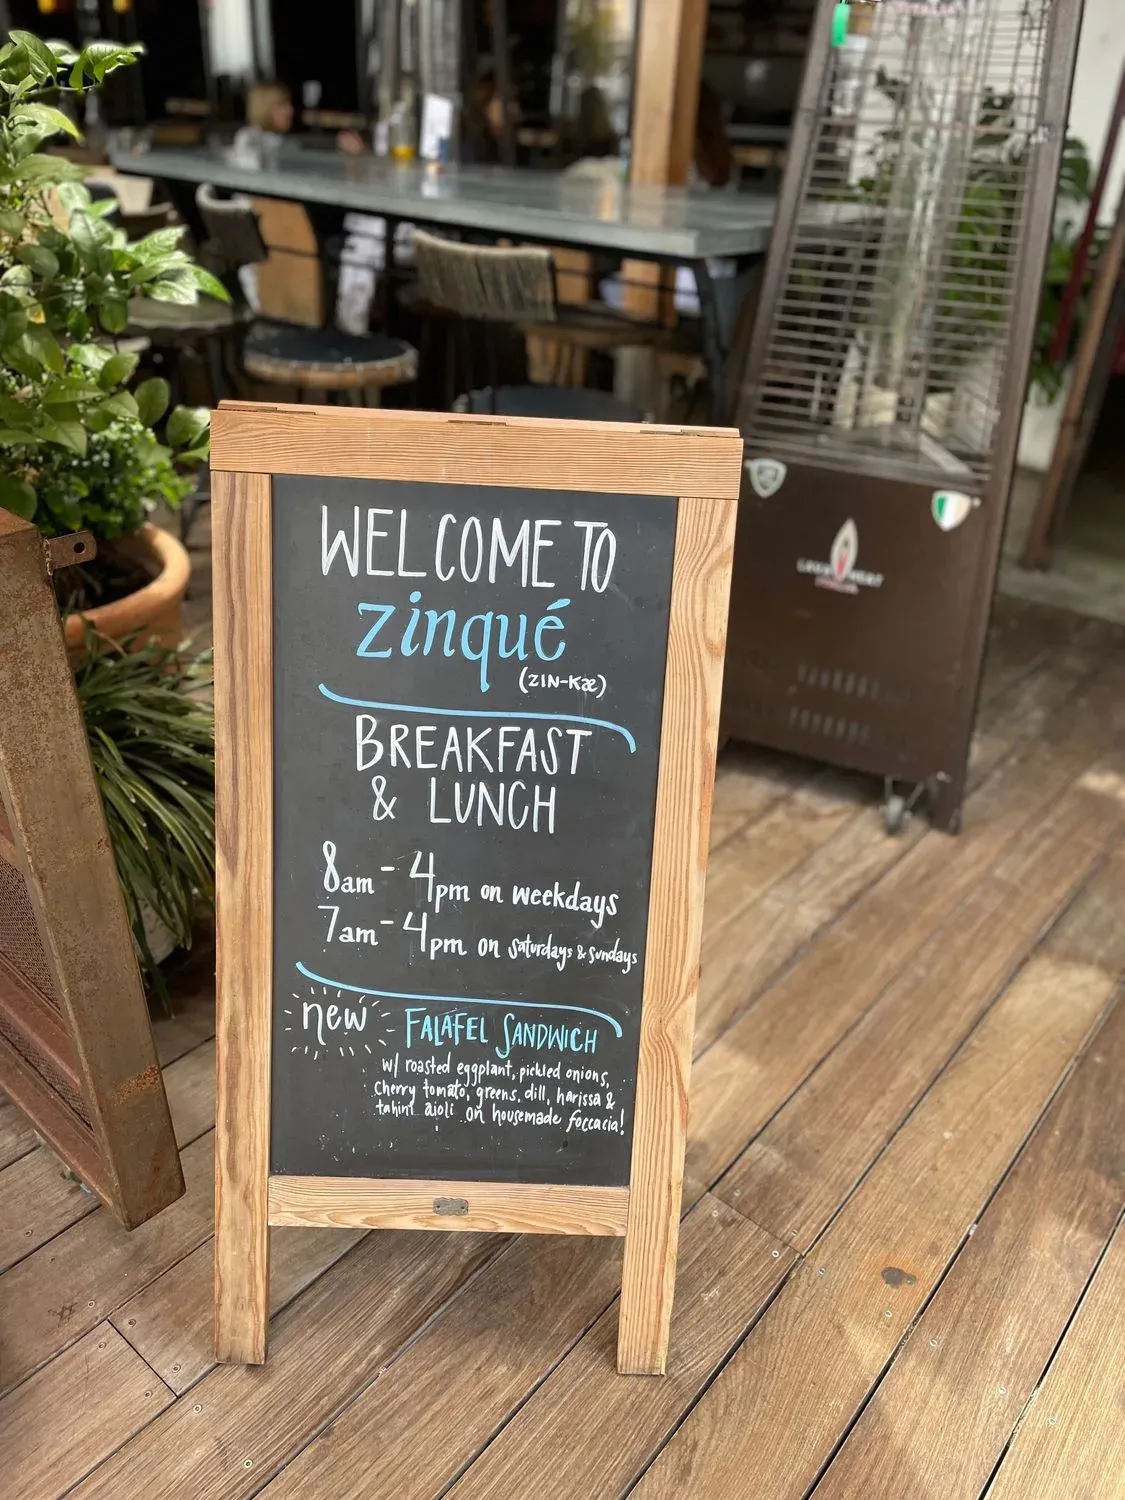 WELCOME TO
zinqué
(ZIN-Kæ)
BREAKFAST
& LUNCH
8am - 4pm on weekdays
7am - 4pm on saturdays & sundays
new FALAFEL SANDWICH
w/ roasted eggplant, pickled onions,
cherry tomato, greens, dill, harissa &
tahini aioli on housemade foccacia!